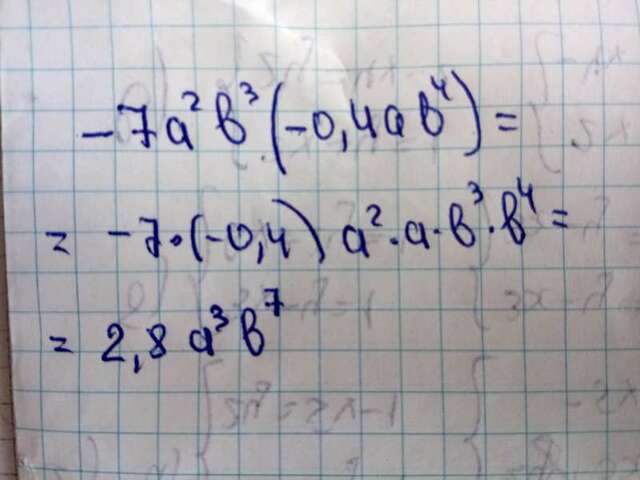 -7a²b³(-0,4ab⁴) =
= -7·(-0,4)a²·a·b³·b⁴ =
= 2,8a³b⁷